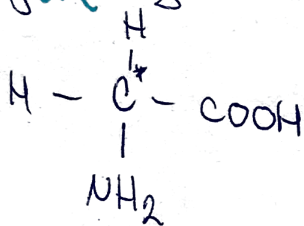 H
H - C* - COOH
NH2